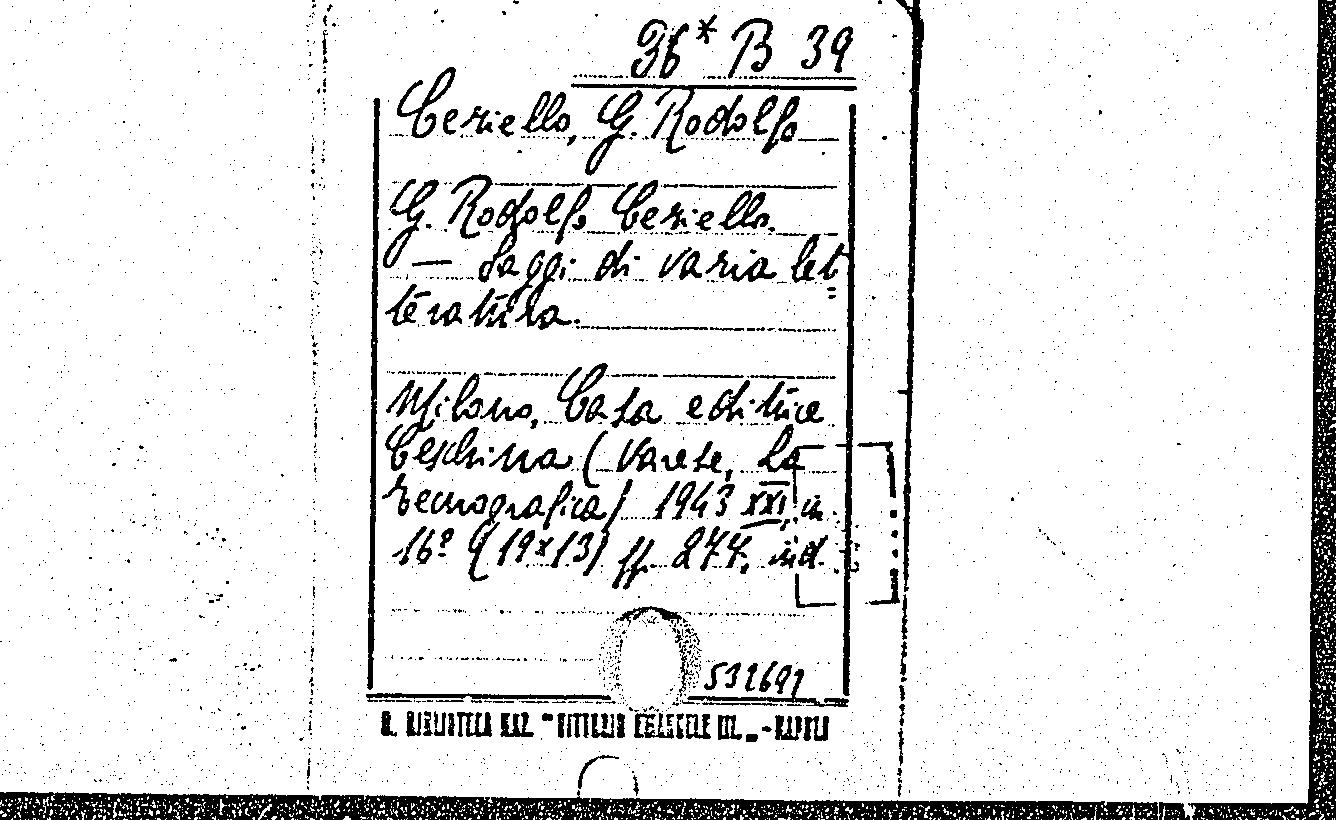 36* B 39
Ceriello, G. Rodolfo
G. Rodolfo Ceriello.
— Saggi di varia let=
teratura.
Milano, Casa editrice
Ceschina (Varese, La
tecnografica) 1943 XXI, in
16º (19x13) pp. 277, ind.
532691
R. BIBLIOTECA NAZ. "VITTORIO EMANUELE III" - NAPOLI